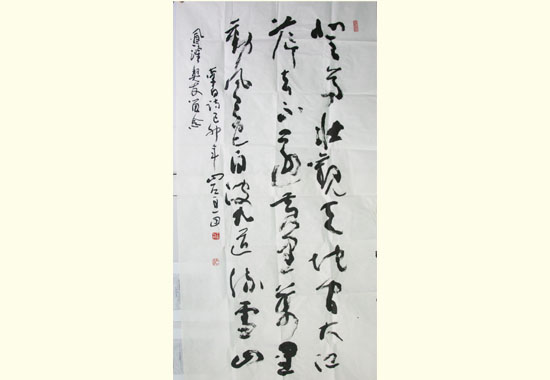 登高壯觀天地間大江
茫茫去不還黄雲萬里
動風色白波九道流雪山
李白詩己卯年山左
鳳澤留念